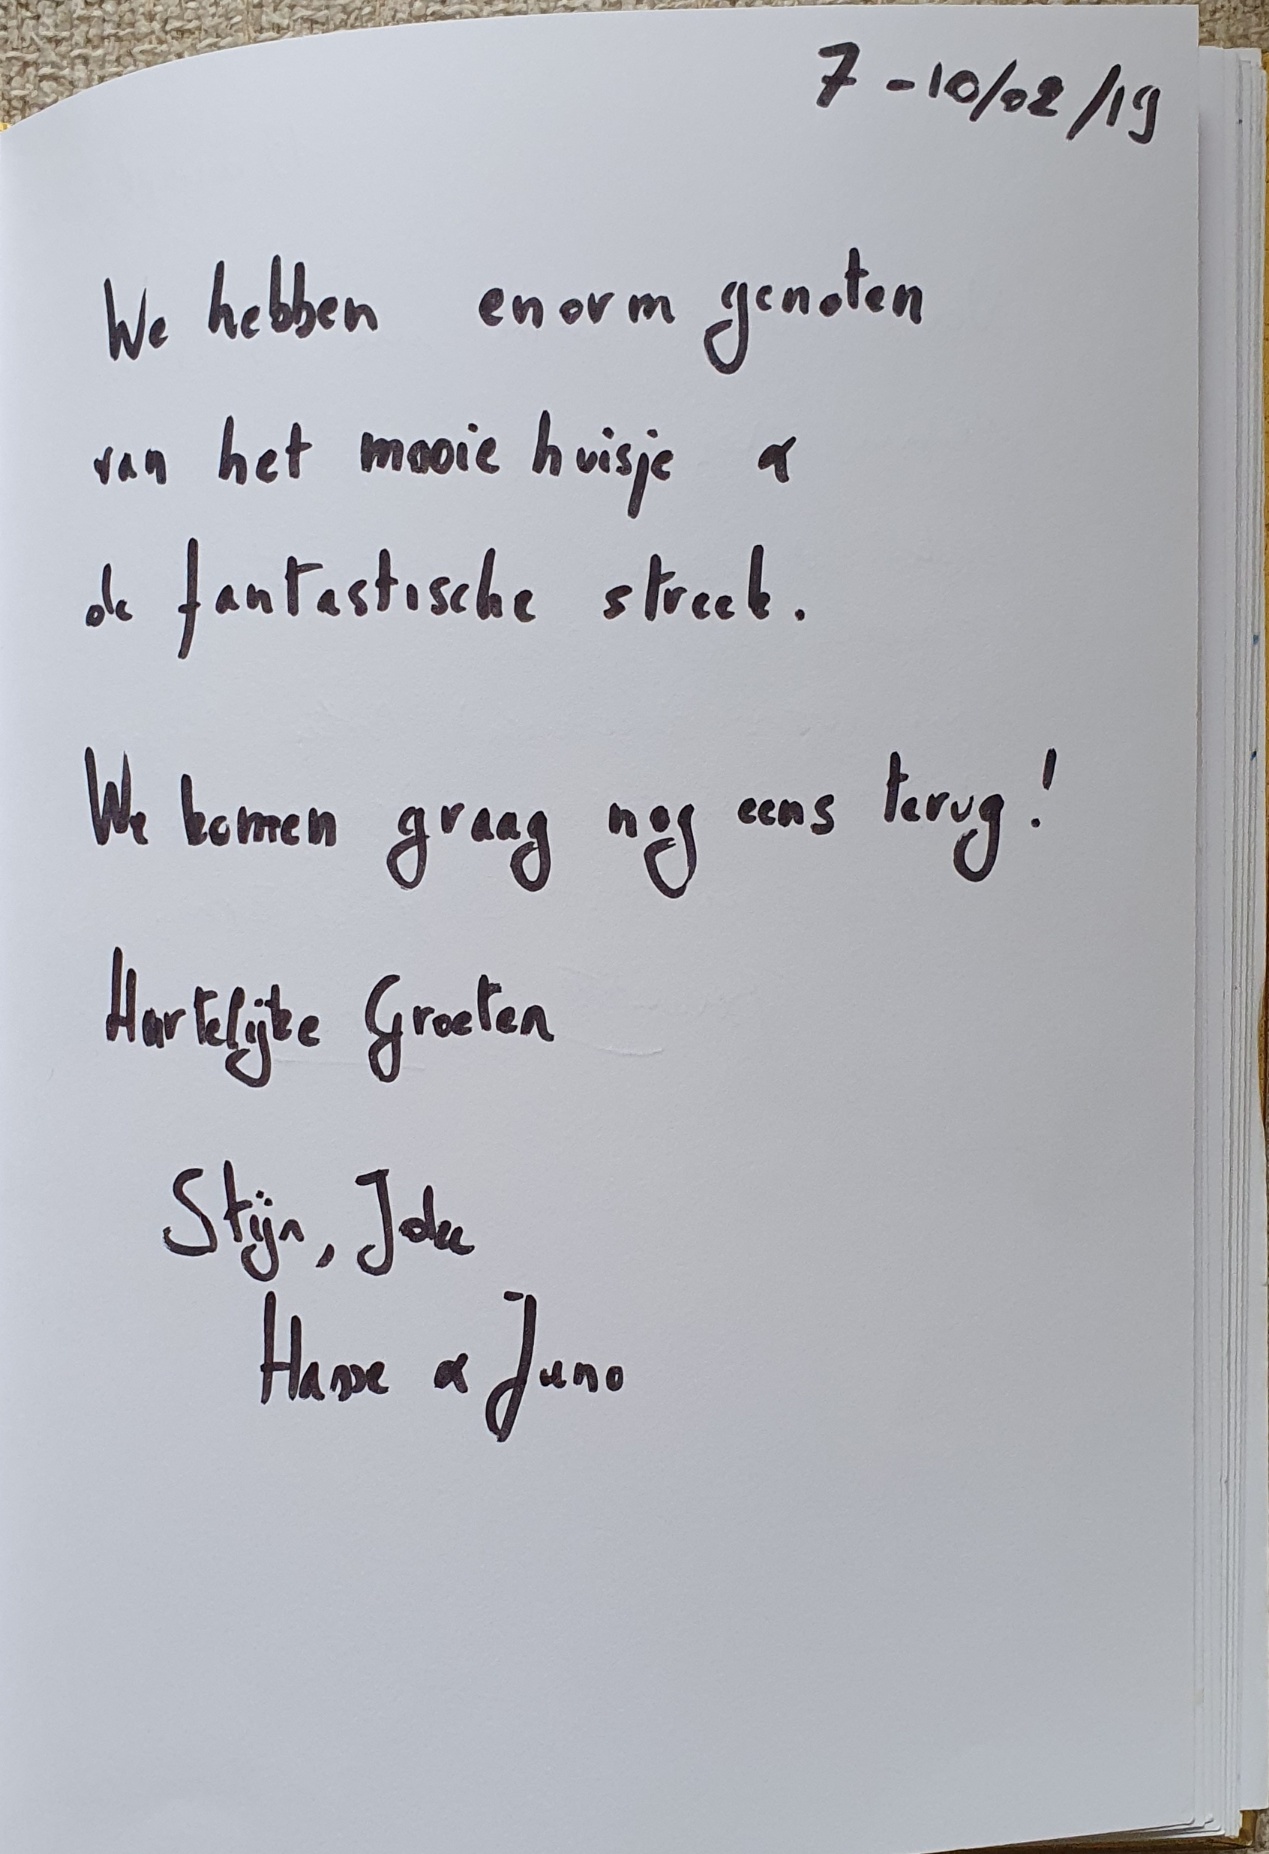 7-10/02/19
We hebben enorm genoten
van het mooie huisje &
de fantastische streek.
We komen graag nog eens terug!
Hartelijke Groeten
Stijn,
Hasse & Juno